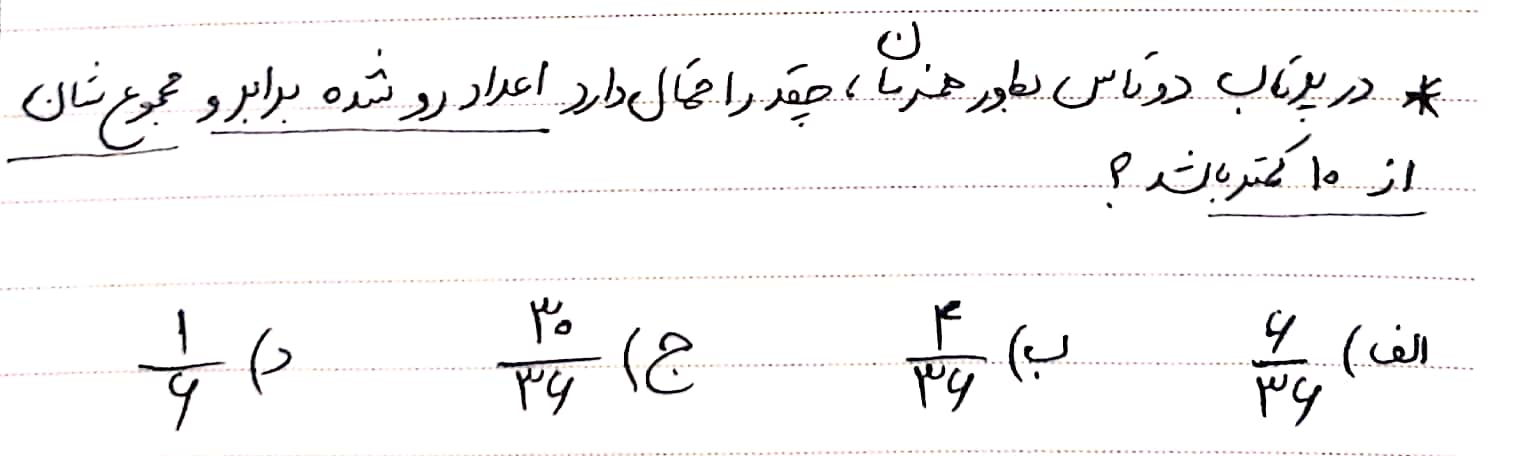 * در پرتاب دو تاس بطور همزمان، چقدر احتمال دارد اعداد رو شده برابر و مجموع شان
از ۱۰ کمتر باشد ؟
الف) ۶/۳۶ ب) ۴/۳۶ ج) ۳۰/۳۶ د) ۱/۶